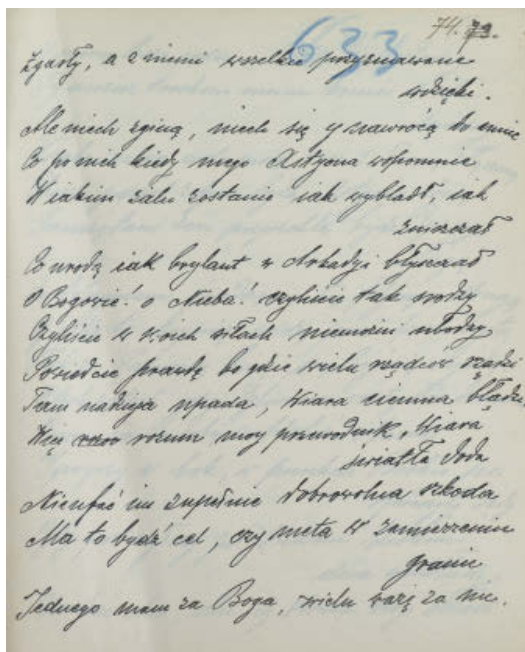 74. 73.
633
zgasły, a z niemi wszelkie przyznawane
wdzięki.
Ale niech zginą, niech się y nawrócą do mnie
Co po nich kiedy mego Astyona wspomnie
W iakim żalu zostanie iak wybladł, iak
zniszczał
Co urodą iak brylant w Arkadyi błyszczał
O Bogowie! o Nieba! czyliście tak srodzy
Czyliście w swoich siłach niemożni ubodzy
Powiedcie prawdę bo gdzie wielu rządcow rządzi
Tam nadzieja upada, Wiara ciemna błądzi
Więc rozum moy przewodnik, Wiara
światła doda
Nieufać im zupełnie dobrowolna szkoda
Ma to bydź cel, czy meta w zamierzeniu
granic
Jednego mam za Boga, wielu ważę za nic.